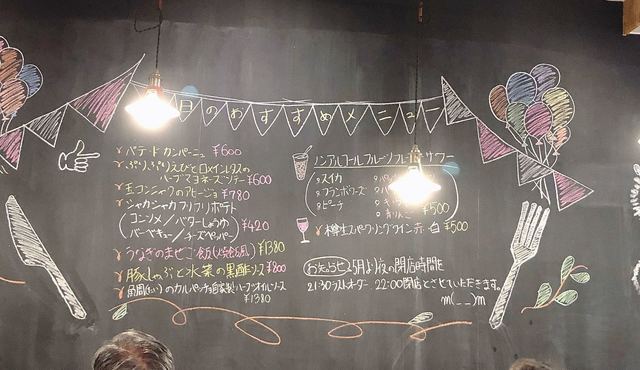 月のおすすめメニュー
パテ・ド・カンパーニュ ¥600
ぷりぷりえびとロメインレタスの
ハーブマヨネーズソテー ¥600
玉コンニャクのアヒージョ ¥780
シャカシャカフリフリポテト
(コンソメ/バターしょうゆ
バーベキュー/チーズペッパー) ¥420
うなぎのまぜご飯 ¥1380
豚しゃぶと水菜の黒酢ソース ¥800
のカルパッチョ自家製ハーブオイルソース
¥1380
ノンアルコールフルーツフレーバーサワー
スイカ
フランボワーズ
ピーチ
¥500
樽生スパークリングワイン 赤・白 ¥500
お知らせ 5月より夜の閉店時間を
21:30ラストオーダー 22:00閉店とさせていただきます。
m(__)m